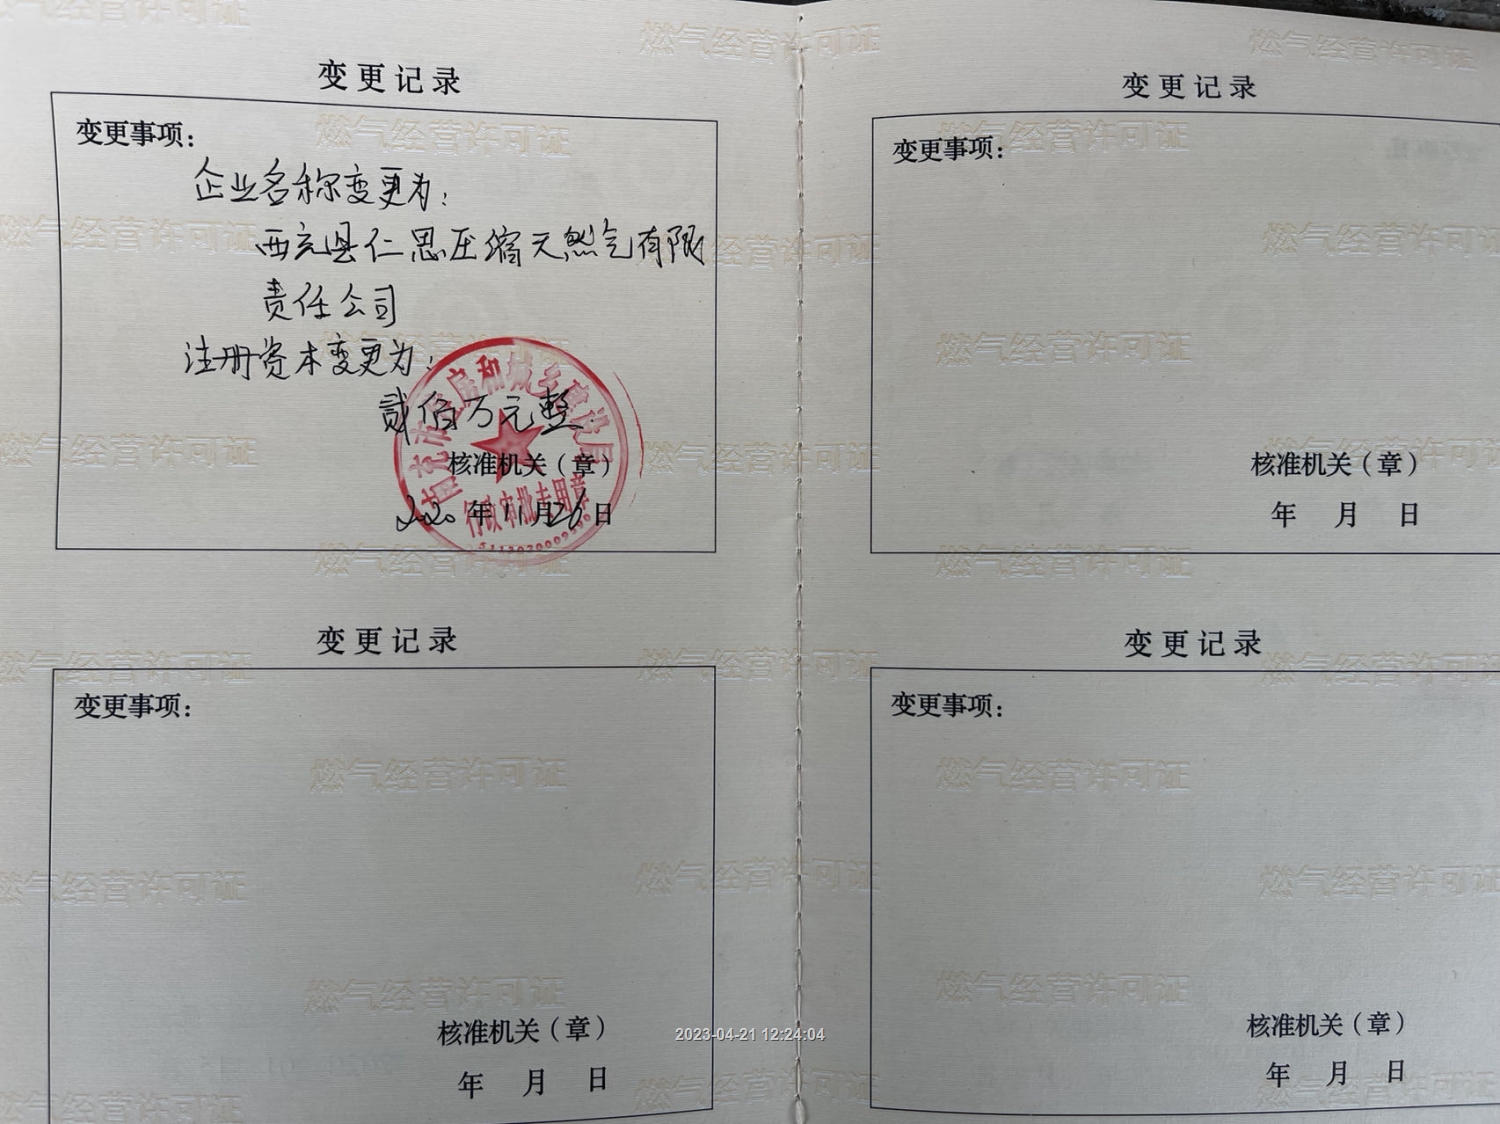 变更记录
变更事项：
企业名称变更为：
西充县仁思压缩天然气有限
责任公司
注册资本变更为：
贰佰万元整
南充市住房和城乡建设局
行政审批专用章
核准机关（章）
2020年11月26日
变更记录
变更事项：
核准机关（章）
年 月 日
变更记录
变更事项：
核准机关（章）
年 月 日
变更记录
变更事项：
核准机关（章）
年 月 日
燃气经营许可证
2023-04-21 12:24:04